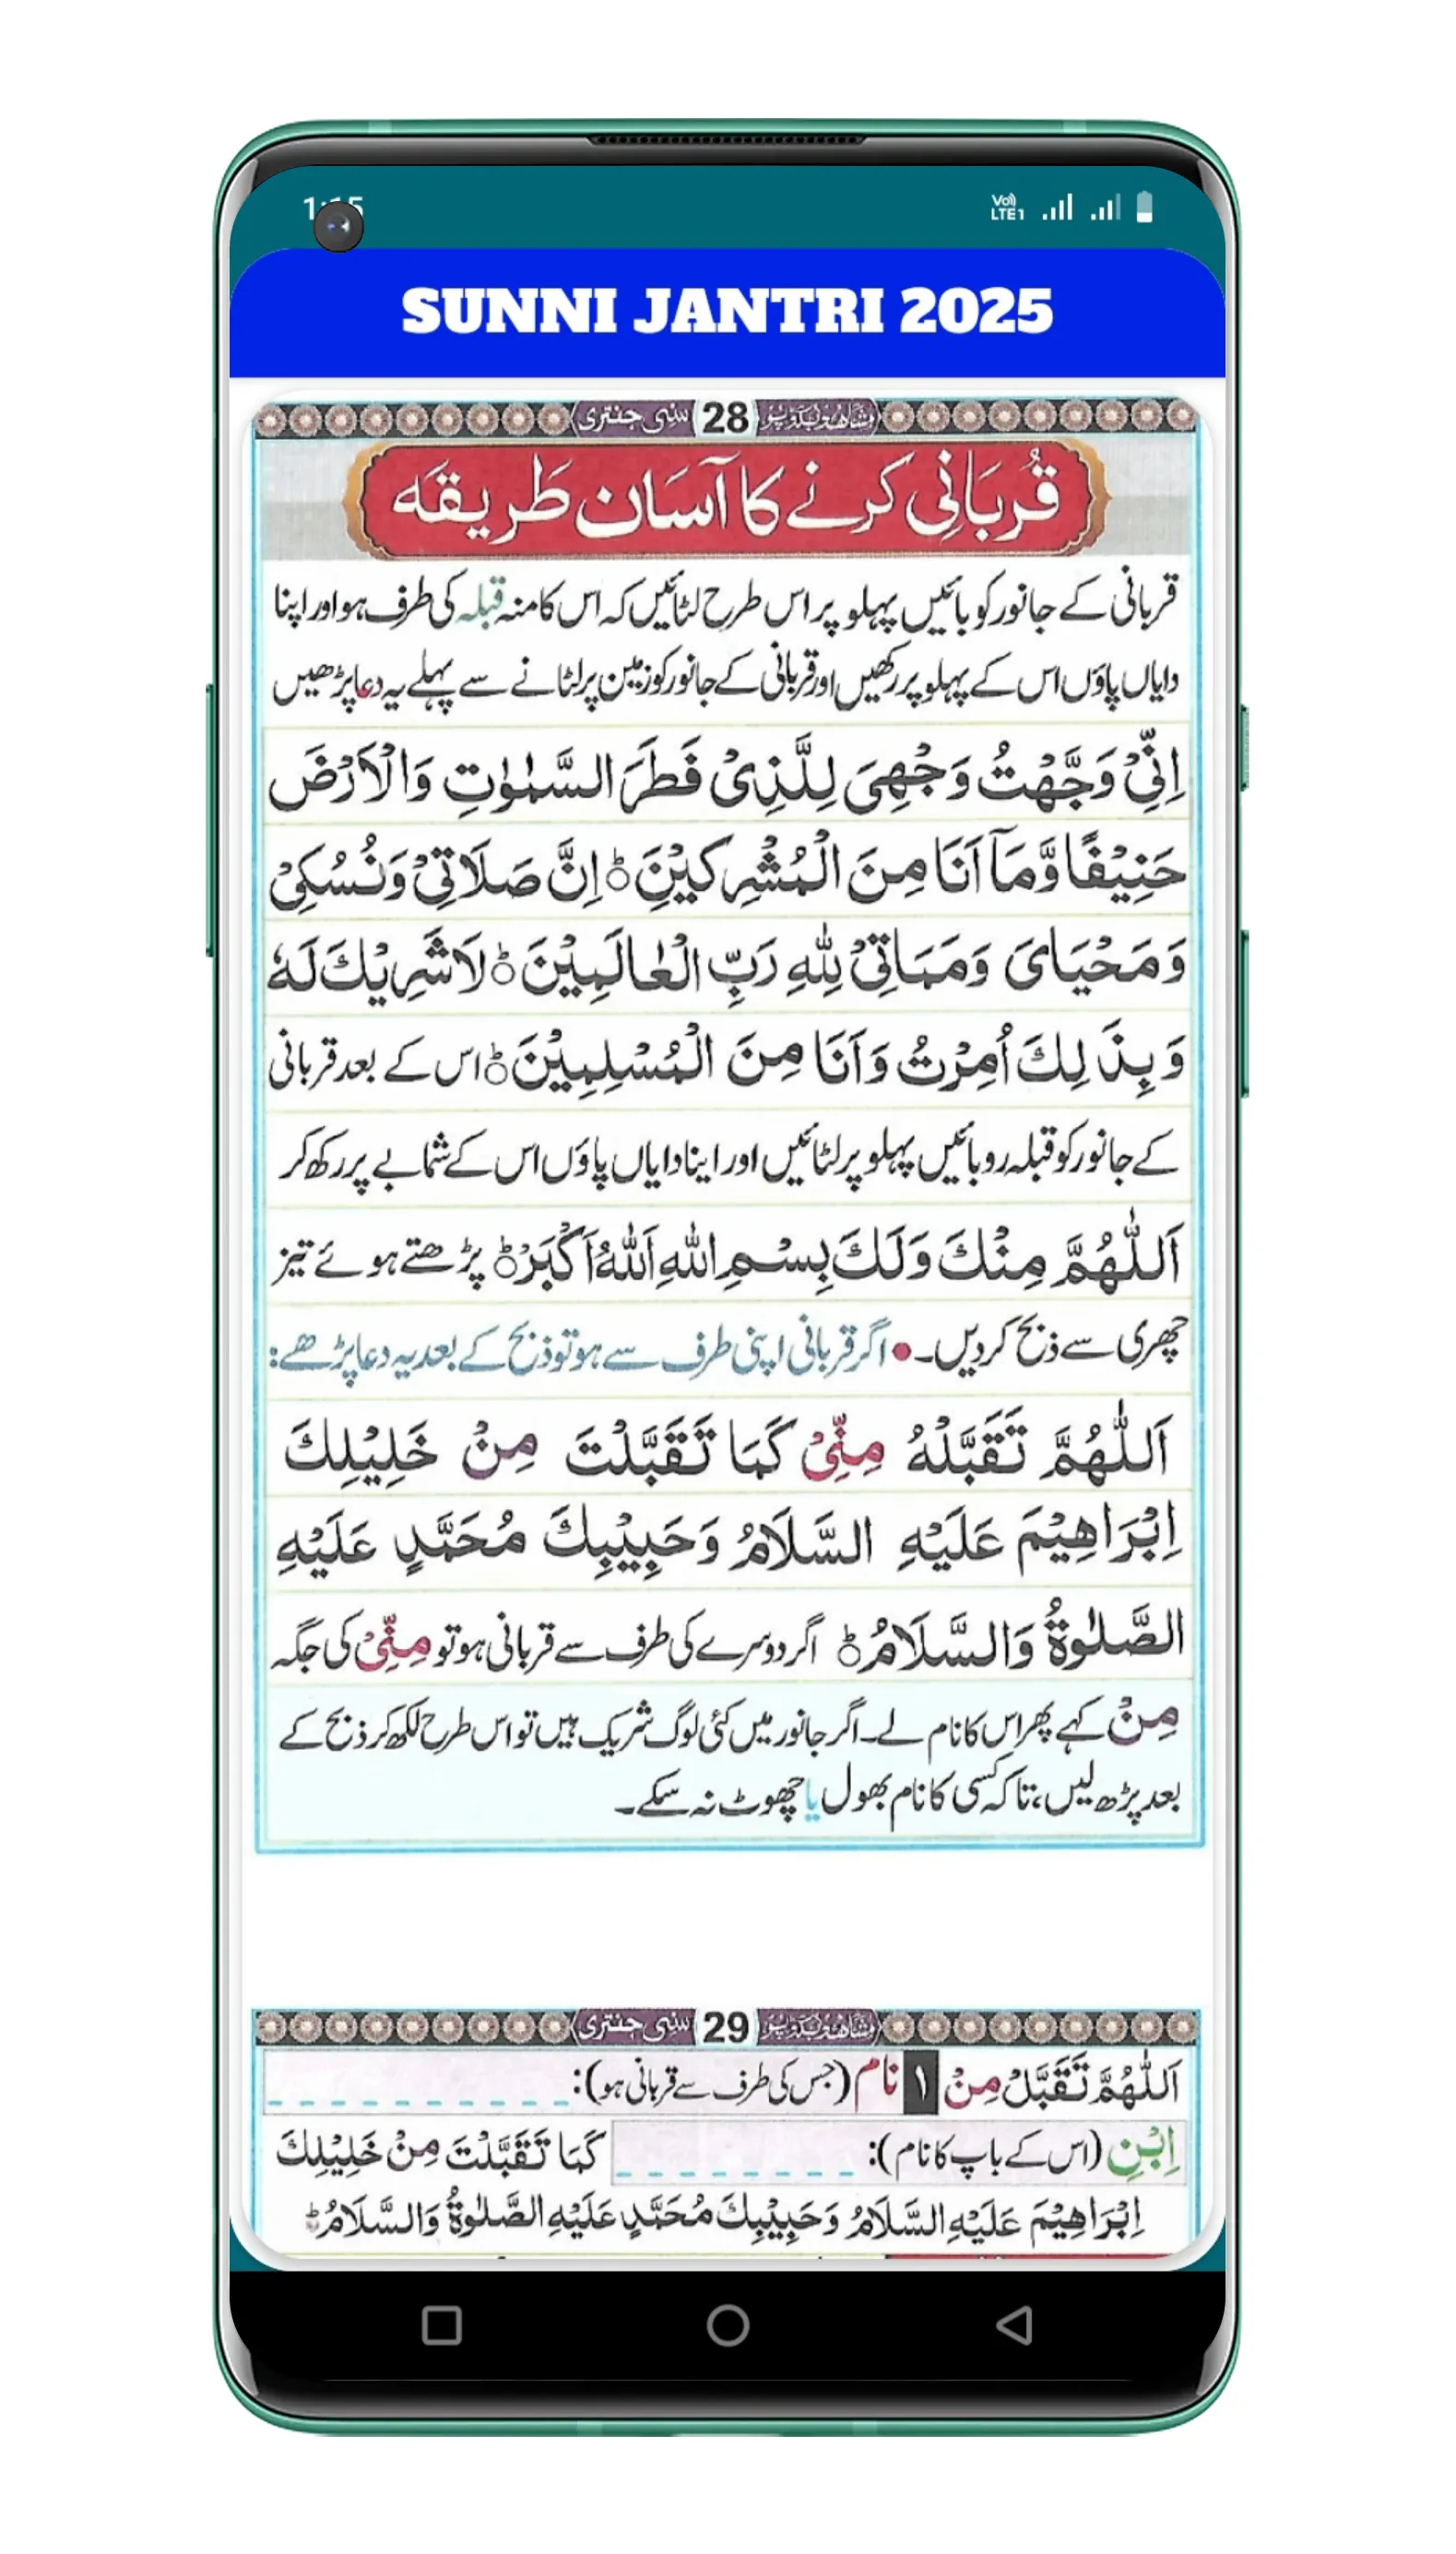 1:15
Vo) LTE1
SUNNI JANTRI 2025
سنی جنتری 28 شاھد بکڈپو
قُربَانِی کرنے کا آسَان طَریقَہ
قربانی کے جانور کو بائیں پہلو پر اس طرح لٹائیں کہ اس کا منہ قبلہ کی طرف ہو اور اپنا
دایاں پاؤں اس کے پہلو پر رکھیں اور قربانی کے جانور کو زمین پر لٹانے سے پہلے یہ دعا پڑھیں
اِنِّیْ وَجَّهْتُ وَجْهِیَ لِلَّذِیْ فَطَرَ السَّمٰوٰتِ وَالْاَرْضَ
حَنِیْفًا وَّمَآ اَنَا مِنَ الْمُشْرِكِیْنَ ؕ اِنَّ صَلَاتِیْ وَنُسُكِیْ
وَمَحْیَایَ وَمَمَاتِیْ لِلّٰهِ رَبِّ الْعٰالَمِیْنَ ؕ لَا شَرِیْكَ لَهٗ
وَبِذَ لِكَ اُمِرْتُ وَاَنَا مِنَ الْمُسْلِمِیْنَ ؕ اس کے بعد قربانی
کے جانور کو قبلہ رو بائیں پہلو پر لٹائیں اور اپنا دایاں پاؤں اس کے شانے پر رکھ کر
اَللّٰهُمَّ مِنْكَ وَلَكَ بِسْمِ اللّٰهِ اَللّٰهُ اَكْبَرْ ؕ پڑھتے ہوئے تیز
چھری سے ذبح کردیں۔ • اگر قربانی اپنی طرف سے ہو تو ذبح کے بعد یہ دعا پڑھے:
اَللّٰهُمَّ تَقَبَّلْهُ مِنِّیْ كَمَا تَقَبَّلْتَ مِنْ خَلِیْلِكَ
اِبْرَاهِیْمَ عَلَیْهِ السَّلَامُ وَحَبِیْبِكَ مُحَمَّدٍ عَلَیْهِ
الصَّلٰوةُ وَالسَّلَامُ ؕ اگر دوسرے کی طرف سے قربانی ہو تو مِنِّیْ کی جگہ
مِنْ کہے پھر اس کا نام لے۔ اگر جانور میں کئی لوگ شریک ہیں تو اس طرح لکھ کر ذبح کے
بعد پڑھ لیں، تاکہ کسی کا نام بھول یا چھوٹ نہ سکے۔
سنی جنتری 29 شاھد بکڈپو
اَللّٰهُمَّ تَقَبَّلْ مِنْ ۱ نام (جس کی طرف سے قربانی ہو):
اِبْنِ (اس کے باپ کا نام): كَمَا تَقَبَّلْتَ مِنْ خَلِیْلِكَ
اِبْرَاهِیْمَ عَلَیْهِ السَّلَامُ وَحَبِیْبِكَ مُحَمَّدٍ عَلَیْهِ الصَّلٰوةُ وَالسَّلَامُ ؕ